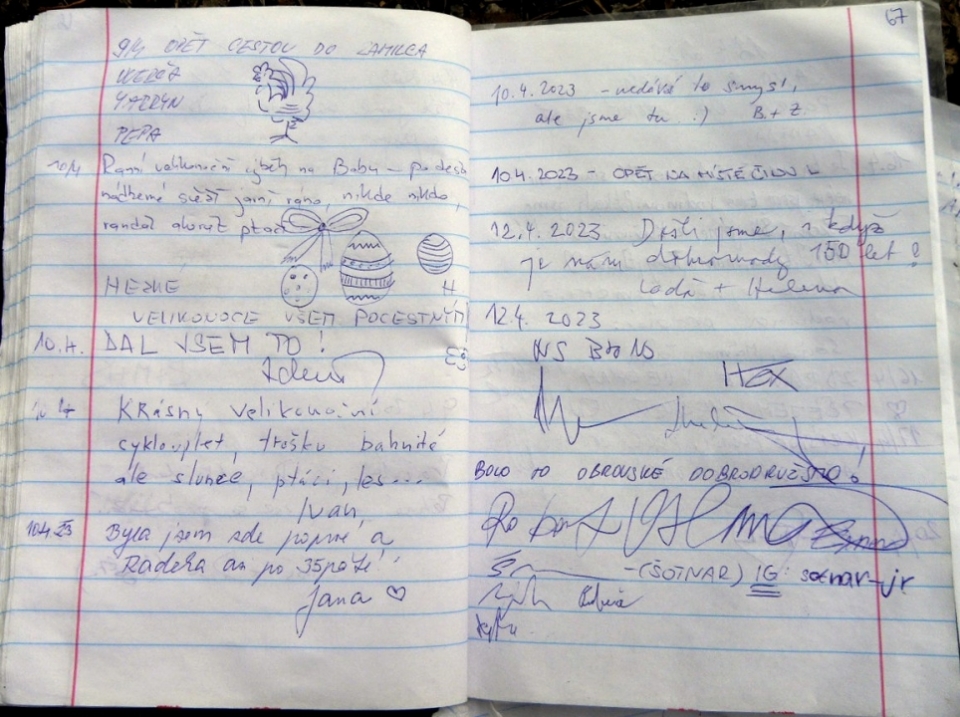 9/4 OPĚT CESTOU DO
PEPA
10/4 Ranní velikonoční výběh na Babu –
nádherné svěží jarní ráno, nikde nikdo,
randál akorát ptáci
HEZKÉ
VELIKONOCE VŠEM POCESTNÝM
10.4. DAL JSEM TO!
Krásný velikonoční
cyklovýlet, trošku bahnité
ale slunce, ptáci, les...
Ivan
10.4.23 Byla jsem zde poprvé a
Radeka an po 35páté!
Jana ♡
67
10.4.2023 – nedává to smysl,
ale jsme tu :) B. + Z.
10.4.2023 – OPĚT NA MÍSTĚ ČINU
12.4. 2023 Došli jsme, i když
je nám dohromady 150 let!
Loďa + Helena
12.4. 2023
Hex
BOLO TO OBROVSKÉ DOBRODRUŽSTVO!
– (ŠOTNAR) IG: sotnar-jr